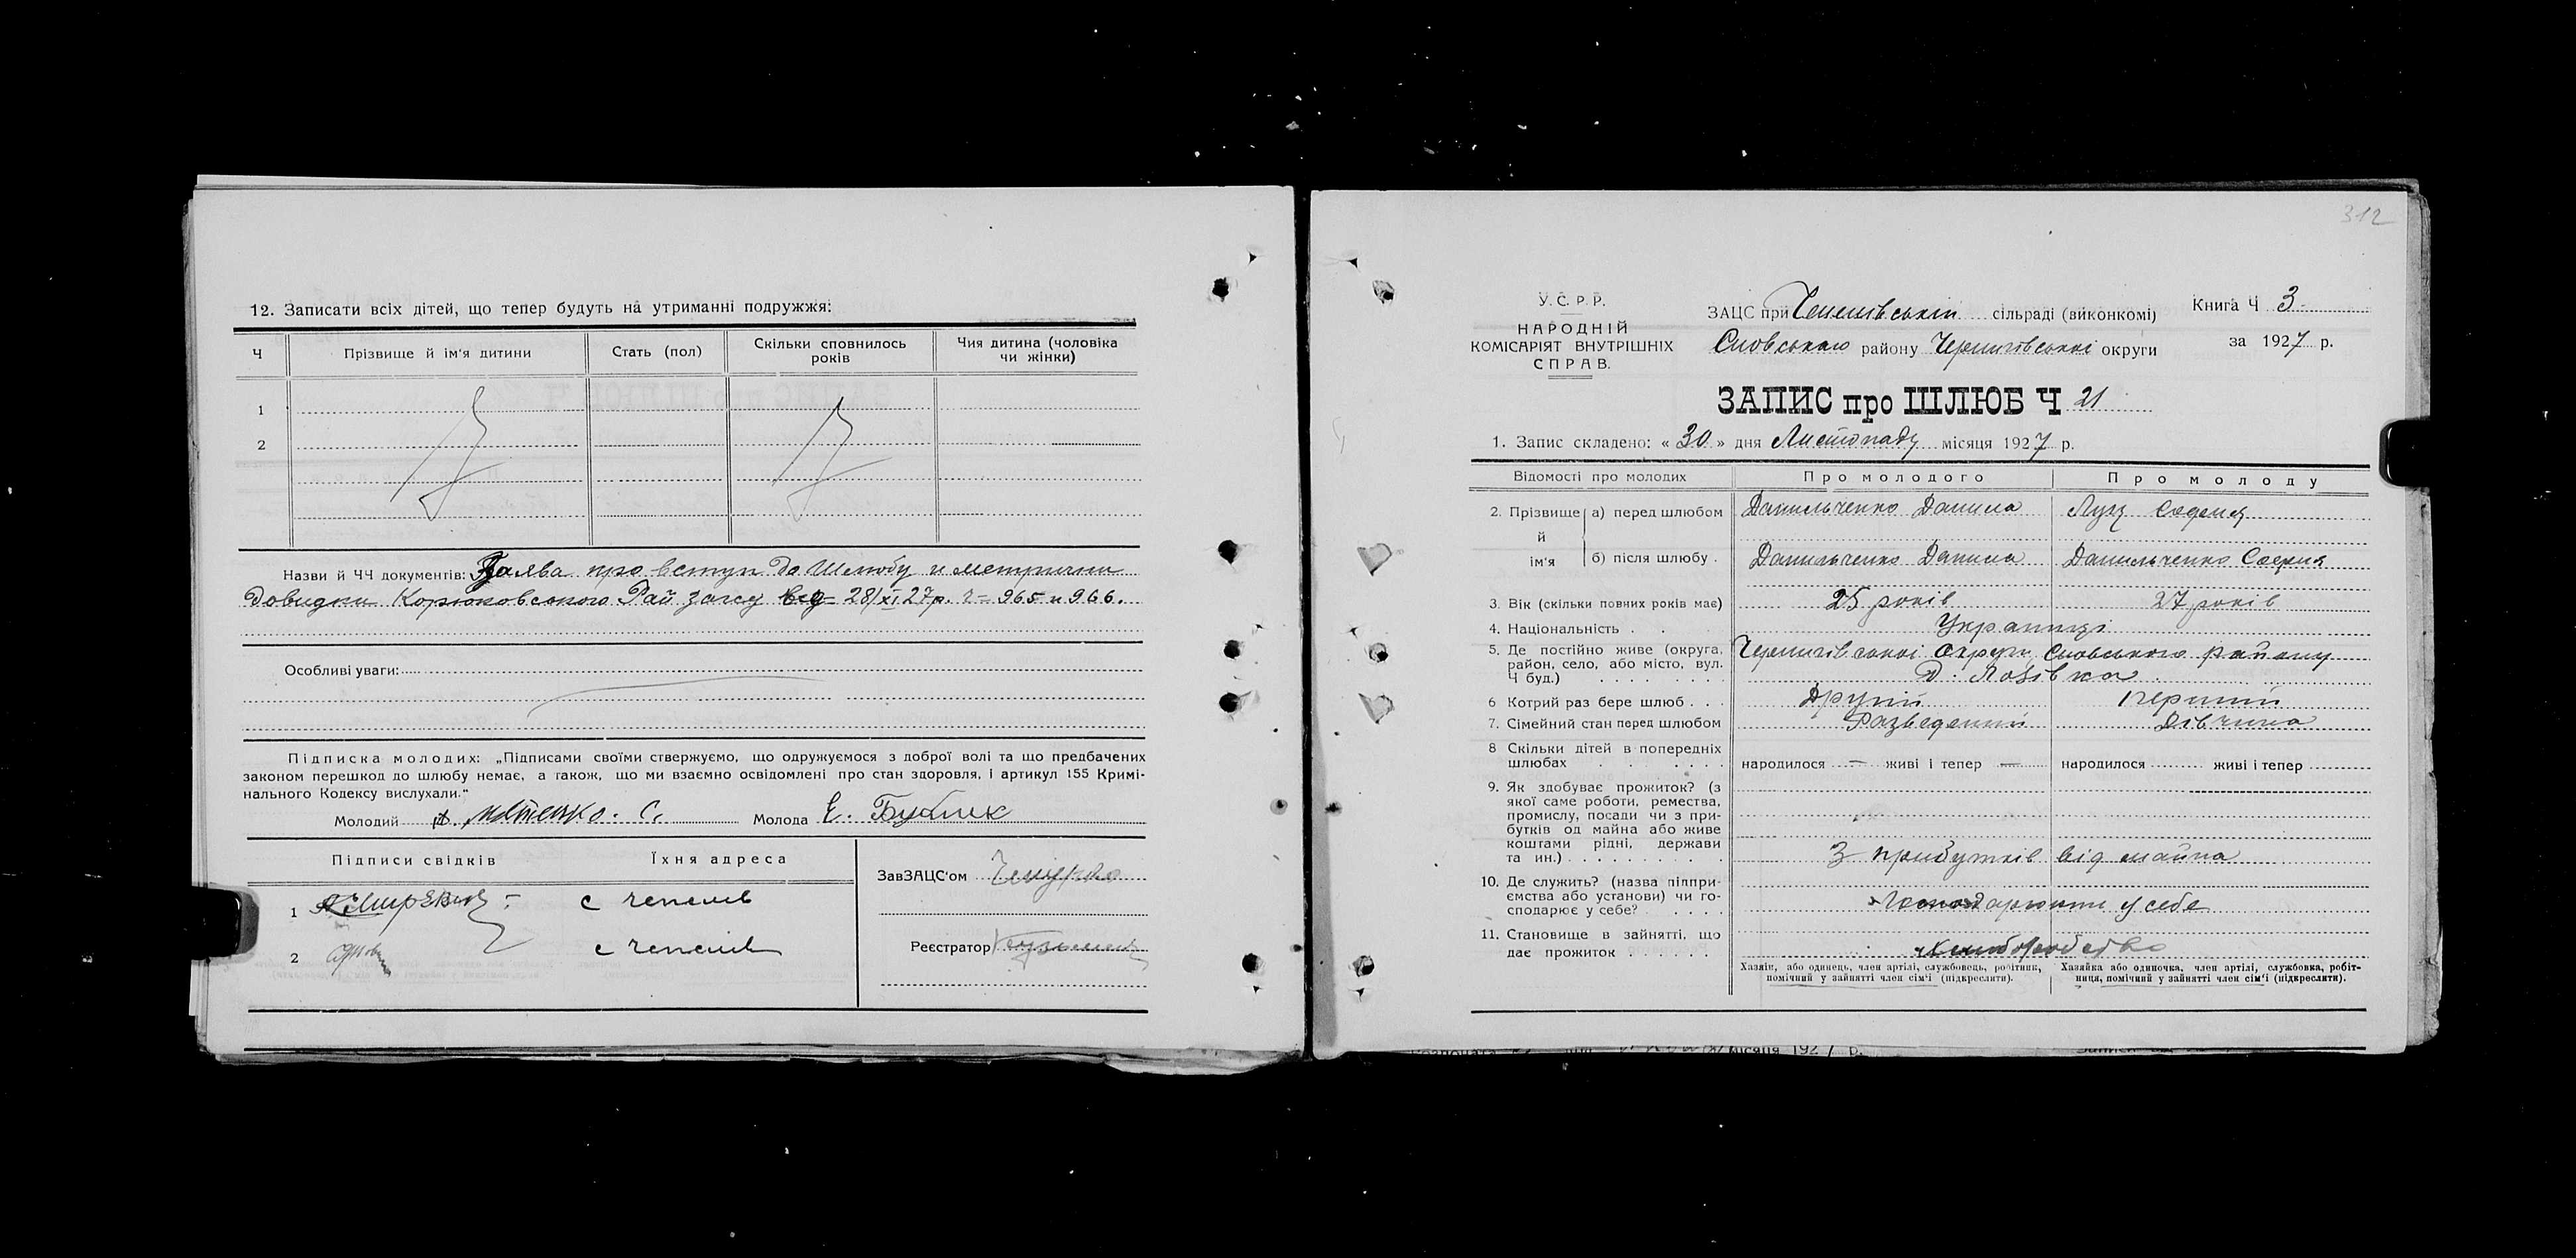 12. Записати всіх дітей, що тепер будуть на утриманні подружжя:
Ч
Прізвище й ім'я дитини
Стать (пол)
Скільки сповнилось років
Чия дитина (чоловіка чи жінки)
1
2
Назви й ЧЧ документів: Заява про вступ до Шлюбу и метрични
Довидки Корюковського Рай загсу від 28/XI 27р. Ч= 965 и 966.
Особливі уваги:
Підписка молодих: „Підписами своїми стверджуємо, що одружуємося з доброї волі та що предбачених
законом перешкод до шлюбу немає, а також, що ми взаємно освідомлені про стан здоровля, і артикул 155 Кримі-
нального Кодексу вислухали."
Молодий
Молода Е. Бублик
Підписи свідків
Їхня адреса
1
с чепелів
2
с чепелів
ЗавЗАЦС'ом
Реєстратор
312
У.С.Р.Р.
НАРОДНІЙ
КОМІСАРІЯТ ВНУТРІШНІХ
СПРАВ.
ЗАЦС при Чепелівській сільраді (виконкомі)
Сновського району Чернигівської округи
Книга Ч 3
за 1927 р.
ЗАПИС про ШЛЮБ Ч 21
1. Запис складено: « 30 » дня Листопаду місяця 1927 р.
Відомості про молодих
Про молодого
Про молоду
2. Прізвище й ім'я
а) перед шлюбом
Данильченко Данила
Лущ
б) після шлюбу .
Данильченко Данила
Данильченко София
3. Вік (скільки повних років має)
25 років
27 років
4. Національність . .
Українці
5. Де постійно живе (округа,
район, село, або місто, вул.
Ч буд.) . . . . . . .
Чернигівської Округи, Сновського району
Д. Лозівка
6 Котрий раз бере шлюб . . .
Другий
Перший
7. Сімейний стан перед шлюбом
Разведений
Дівчина
8 Скільки дітей в попередніх
шлюбах . . . . . .
народилося — живі і тепер —
народилося живі і тепер
9. Як здобуває прожиток? (з
якої саме роботи, ремества,
промислу, посади чи з при-
бутків од майна або живе
коштами рідні, держави
та ин.) . . . . . . . . . .
З прибутків від майна
10. Де служить? (назва підпри-
ємства або установи) чи го-
сподарює у себе? . . . .
Господарюють у себе
11. Становище в зайнятті, що
дає прожиток . . . . . .
хліборобство
Хазяїн, або одинець, член артілі, службовець, робітник,
помічний у зайнятті член сім'ї (підкреслити).
Хазяйка або одиночка, член артілі, службовка, робіт-
ниця, помічний у зайнятті член сім'ї (підкреслити).